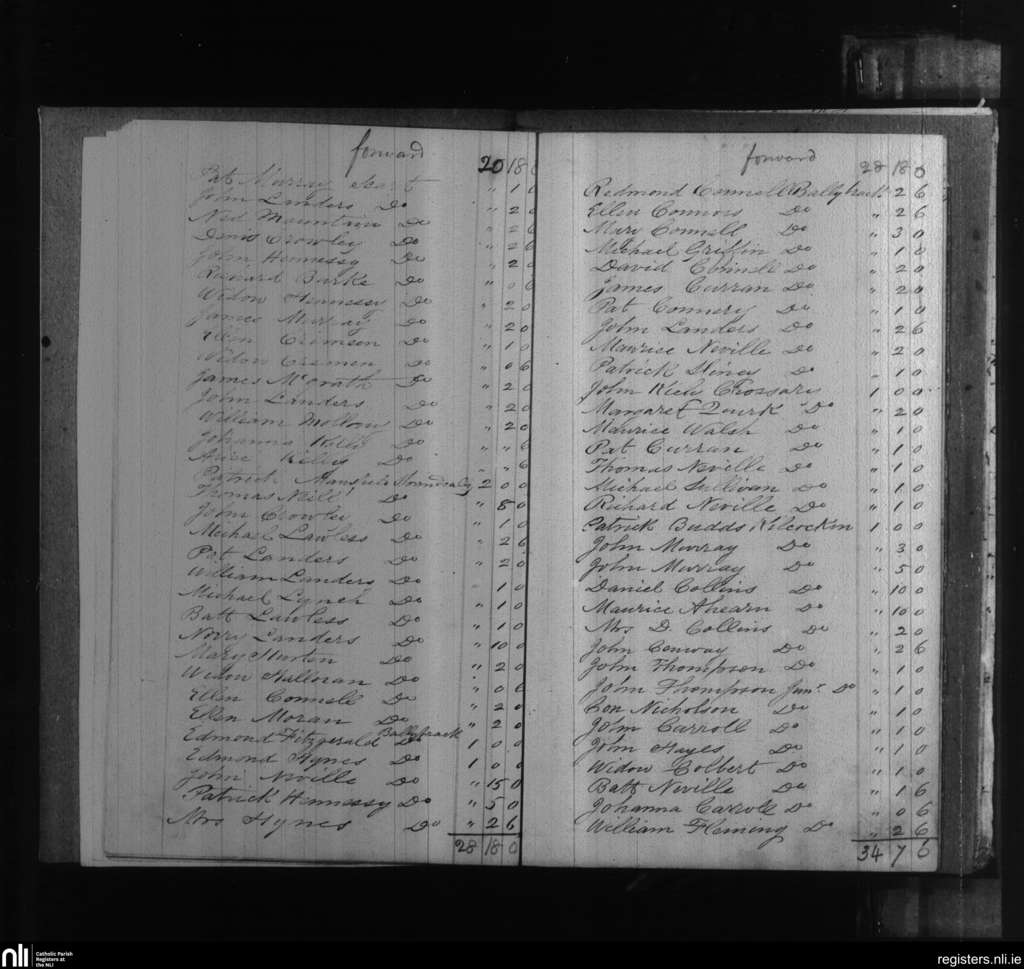 forward 20 18 0
Pat Murray Scart " 1 0
John Landers Do " 2 0
Ned Mountain Do " 2 6
Denis Crowley Do " 2 6
John Hennessy Do " 2 0
Richard Burke Do " 0 6
Widow Hennessy Do " 2 0
James Murray Do " 2 0
Ellen Crimeen Do " 1 0
Widow Cremen Do " 0 6
James McGrath Do " 2 0
John Landers Do " 2 0
William Do " 2 0
Johanna Kelly Do " " 6
Alice Do " " 6
Patrick Mansfield Strancally 2 0 0
Thomas Neill Do " 8 0
John Crowley Do " 1 0
Michael Lawless Do " 2 6
Pat Landers Do " 2 0
William Landers Do " 1 0
Michael Lynch Do " 1 0
Batt Lawless Do " 1 0
Nora Landers Do " 10 0
Mary Do " 2 0
Widow Halloran Do " 0 6
Ellen Connell Do " 2 0
Ellen Moran Do " 2 0
Edmond Fitzgerald Ballytrack 1 0 0
Edmond Hynes Do 1 0 0
John Neville Do " 15 0
Patrick Hennessy Do " 5 0
Mrs Hynes Do " 2 6
28 18 0
forward 28 18 0
Redmond Connell Ballytrack 2 6
Ellen Connors Do " 2 6
Mary Connell Do " 3 0
Michael Griffin Do " 1 0
David Connell Do " 2 0
James Curran Do " 2 0
Pat Connery Do " 1 0
John Landers Do " 2 6
Maurice Neville Do " 2 0
Patrick Hines Do " 1 0
John Kiely 1 0 0
Margaret Quirk Do " 2 0
Maurice Walsh Do " 1 0
Pat Curran Do " 1 0
Thomas Neville Do " 1 0
Michael Sullivan Do " 1 0
Richard Neville Do " 1 0
Patrick Budds Kilcockin 1 0 0
John Murray Do " 3 0
John Murray Do " 5 0
Daniel Collins Do " 10 0
Maurice Ahearn Do " 10 0
Mrs D. Collins Do " 2 0
John Conway Do " 2 6
John Thompson Do " 1 0
John Thompson Junr Do " 1 0
Con Nicholson Do " 1 0
John Carroll Do " 1 0
John Hayes Do " 1 0
Widow Colbert Do " 1 0
Batt Neville Do " 1 6
Johanna Carroll Do " 0 6
William Fleming Do " 2 6
34 7 6
nli Catholic Parish
Registers at
the NLI
registers.nli.ie